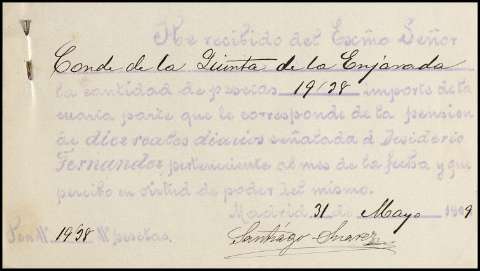 He recibido del Exmo Señor
Conde de la Quinta de la Enjarada
la cantidad de pesetas 19'38 importe de la
cuarta parte que le corresponde de la pension
de diez reales diarios señalada á Desiderio
Fernandez, perteneciente al mes de la fecha y que
percibo en virtud de poder del mismo.
Madrid 31 de Mayo
Son 19'38 pesetas.
Santiago Suarez